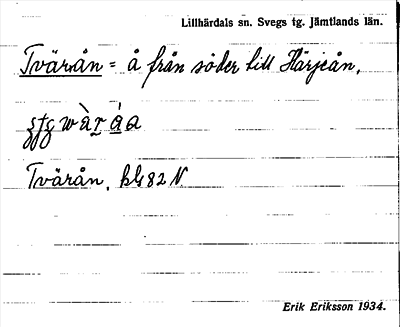 Lillhärdals sn. Svegs tg. Jämtlands län.
Tvärån = å från söder till Härjeån,
Tvärån, bl 82 N.
Erik Eriksson 1934.